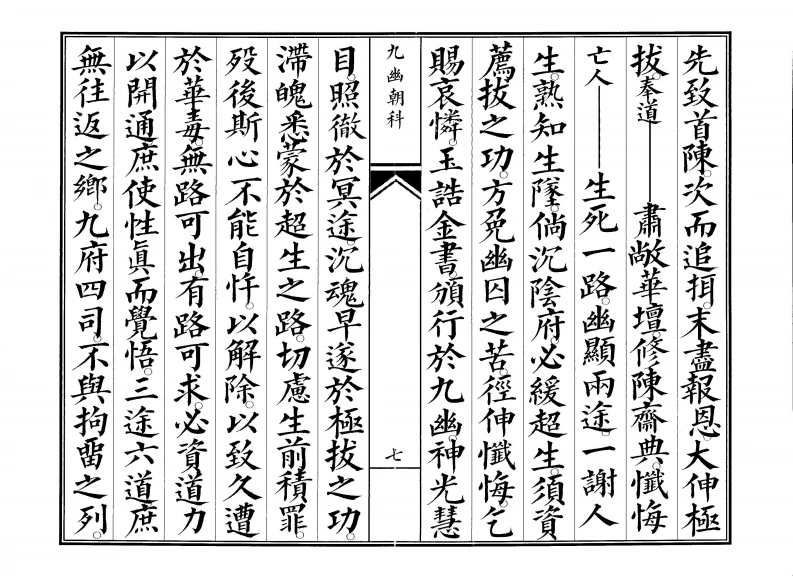 先致首陳。次而追拑。末盡報恩。大伸極
拔奉道——肅敞華壇。修陳齋典。懺悔
亡人——生死一路。幽顯兩途。一謝人
生。熟知生墜。倘沉陰府。必緩超生。須資
薦拔之功。方免幽囚之苦。徑伸懺悔。乞
賜哀憐。玉誥金書。頒行於九幽。神光慧
九幽朝科
七
目。照徹於冥途。沉魂早遂於極拔之功。
滯魄悉蒙於超生之路。切慮生前積罪。
歿後斯心不能自忤。以解除。以致久遭
於華毒。無路可出。有路可求。必資道力
以開通。庶使性真而覺悟。三途六道。庶
無往返之鄉。九府四司。不與拘畱之列